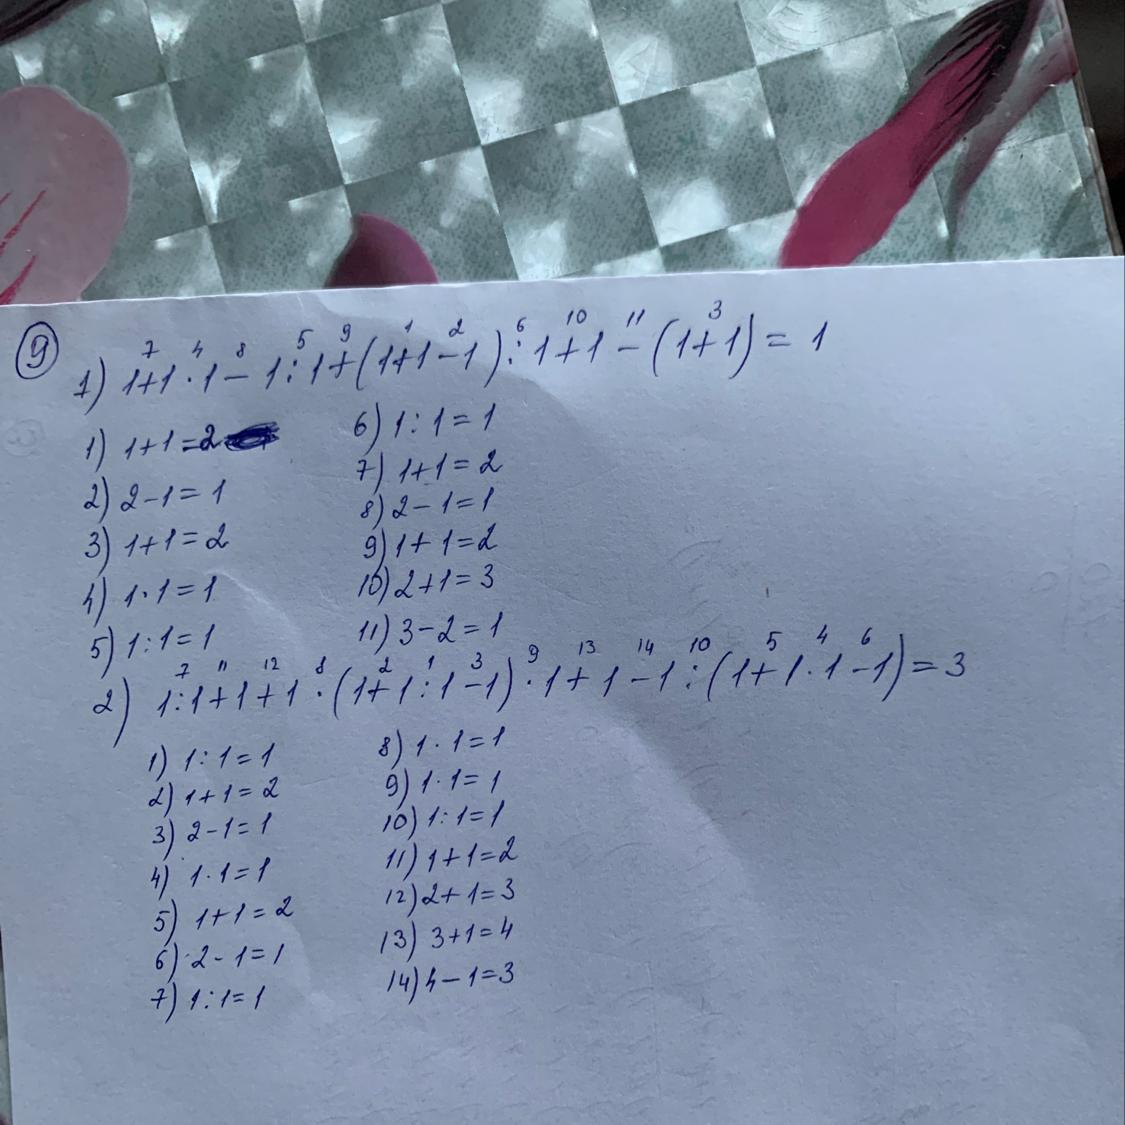 9
7 4 8 5 9 1 2 6 10 11 3
1) 1+1·1-1:1+(1+1-1):1+1-(1+1)=1
1) 1+1=2
2) 2-1=1
3) 1+1=2
4) 1·1=1
5) 1:1=1
6) 1:1=1
7) 1+1=2
8) 2-1=1
9) 1+1=2
10) 2+1=3
11) 3-2=1
7 11 12 8 2 1 3 9 13 14 10 5 4 6
2) 1:1+1+1·(1+1:1-1)·1+1-1:(1+1·1-1)=3
1) 1:1=1
2) 1+1=2
3) 2-1=1
4) 1·1=1
5) 1+1=2
6) 2-1=1
7) 1:1=1
8) 1·1=1
9) 1·1=1
10) 1:1=1
11) 1+1=2
12) 2+1=3
13) 3+1=4
14) 4-1=3